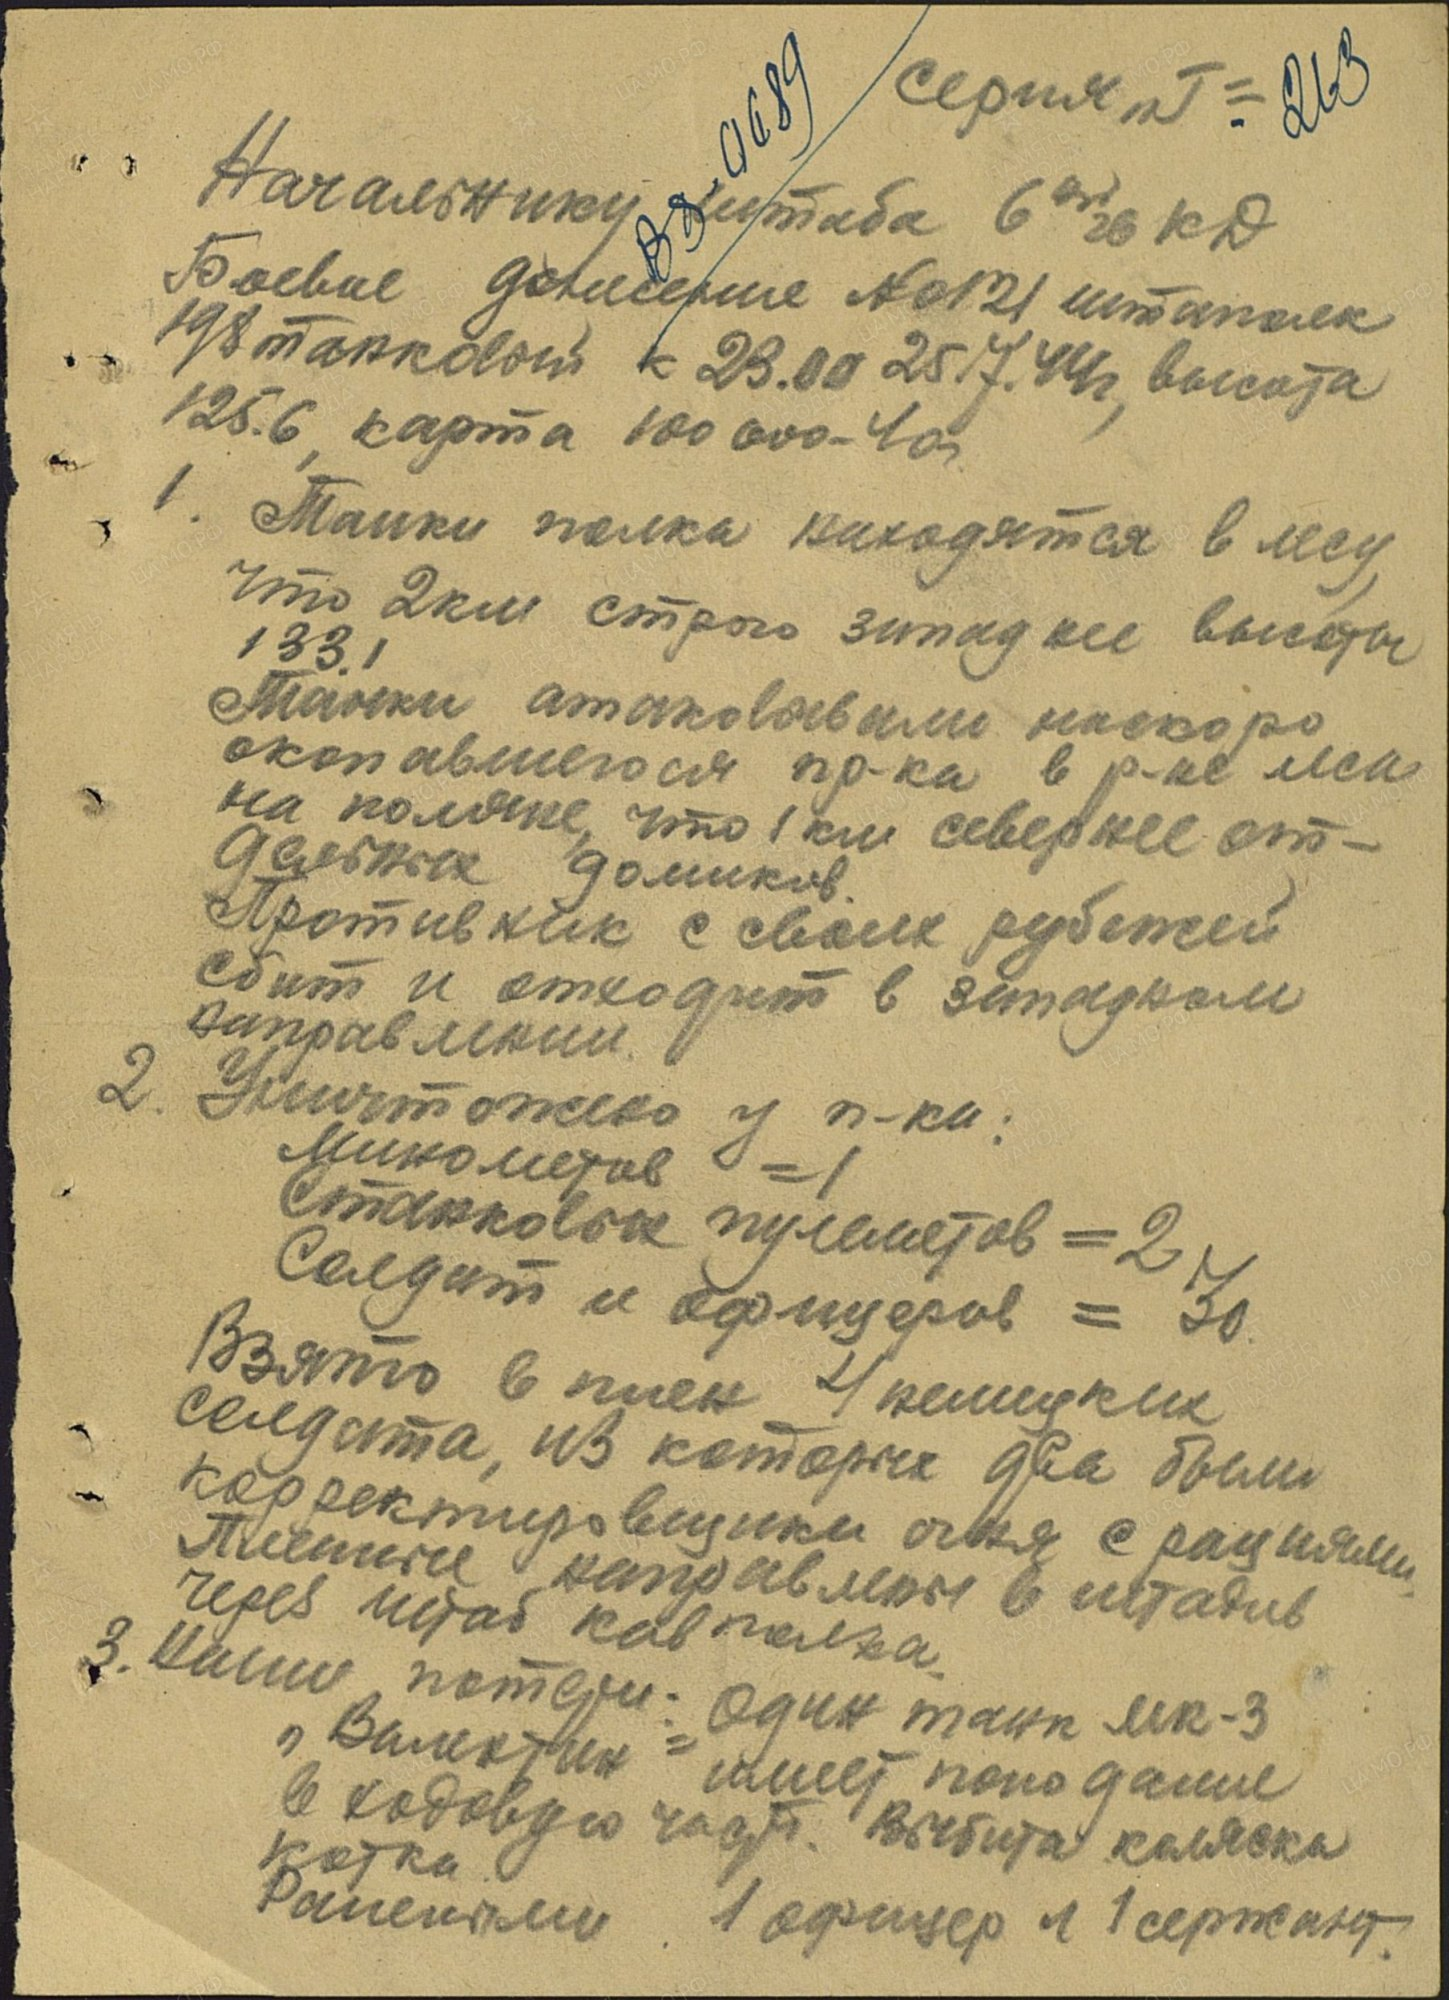 Серия "Г" =
213
вд-0689
Начальнику штаба 6 ой гв КД
Боевое донесение №0121 штаполк
198 танковый к 23.00 25.7.44г, высота
125.6, карта 100 000-40г.
1. Танки полка находятся в лесу,
что 2 км строго западнее высоты
133.1
Танки атаковывали наскоро
окопавшегося пр-ка в р-не леса
на поляне, что 1 км севернее от-
дельных домиков.
Противник с своих рубежей
сбит и отходит в западном
направлении.
2. Уничтожено у п-ка:
Минометов = 1
Станковых пулеметов = 2
Солдат и офицеров = 70.
Взято в плен 4 немецких
солдата, из которых два были
корректировщики огня с рациями.
Пленные направлены в штадив
через штаб кавполка.
3. Наши потери: Один танк мк-3
"Валентин = имеет попадание
в ходовую част. Выбита коляска
катка.
Ранеными 1 офицер и 1 сержант.